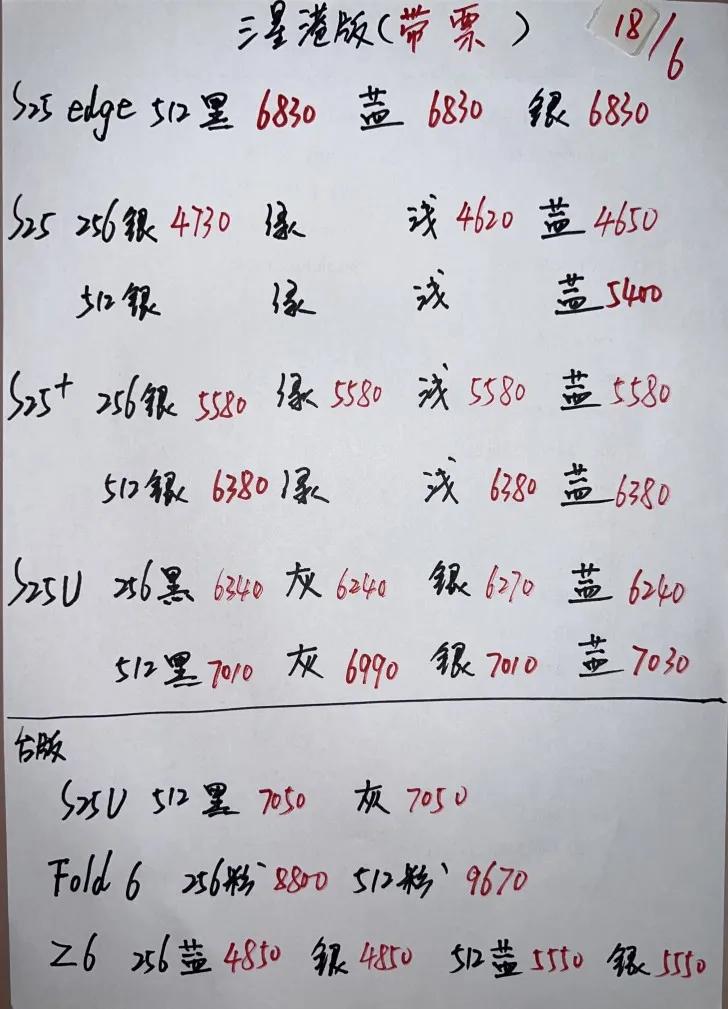 三星港版(带票) 18/6
S25 edge 512黑 6830 蓝 6830 银 6830
S25 256银 4730 绿 浅 4620 蓝 4650
512银 绿 浅 蓝 5400
S25+ 256银 5580 绿 5580 浅 5580 蓝 5580
512银 6380 绿 浅 6380 蓝 6380
S25U 256黑 6340 灰 6240 银 6270 蓝 6240
512黑 7010 灰 6990 银 7010 蓝 7030
台版
S25U 512黑 7050 灰 7050
Fold 6 256粉 8800 512粉 9670
Z6 256蓝 4850 银 4850 512蓝 5550 银 5550